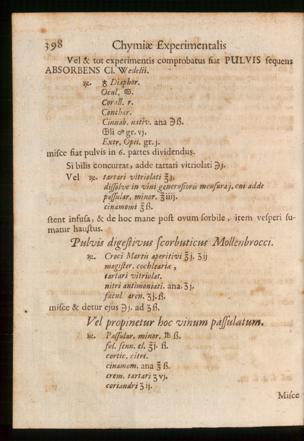 398 Chymiæ Experimentalis
Vel & tot experimentis comprobatus fiat PULVIS sequens
ABSORBENS Cl. Wedelii.
℞. ♁ Diaphor.
Ocul. ♋.
Corall. r.
Conchar.
Cinnab. nativ. ana ℈ß.
⊕li ♂ gr. vj.
Extr. Opii. gr. j.
misce fiat pulvis in 6. partes dividendus.
Si bilis concurrat, adde tartari vitriolati ℈j.
Vel ℞. tartari vitriolati ℥j.
dissolve in vini generosioris mensura j. cui adde
passular. minor. ℥iiij.
cinamomi ℥ß.
stent infusa, & de hoc mane post ovum sorbile, item vesperi su-
matur haustus.
Pulvis digestivus scorbuticus Mollenbrocci.
℞. Croci Martis aperitivi ℥j. ʒij
magister. cochleariæ,
tartari vitriolat.
nitri antimoniati. ana. ʒj.
fæcul. aron. ʒj.ß.
misce & detur ejus ℈j. ad ʒß.
Vel propinetur hoc vinum passulatum.
℞. Passular. minor. ℔ ß.
fol. senn. el. ℥j. ß.
cortic. citri.
cinamom. ana ℥ ß.
crem. tartari ʒ vj.
coriandri ʒ ij.
Misce